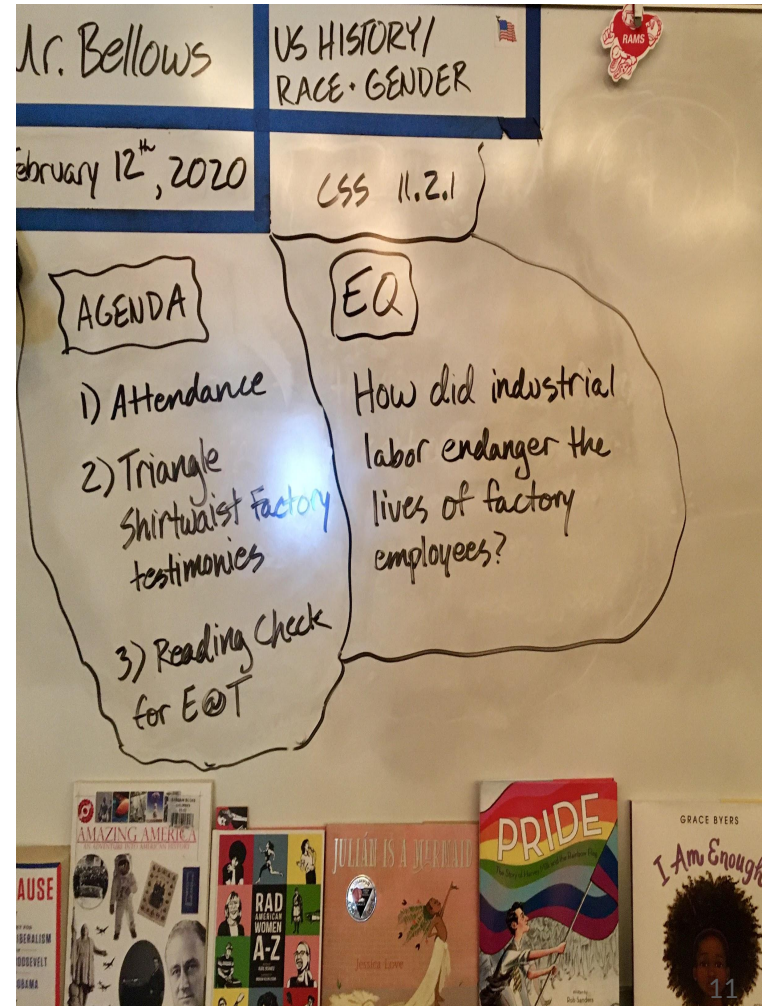 Mr. Bellows
US HISTORY/
RACE • GENDER
RAMS
February 12th, 2020
CSS 11.2.1
AGENDA
1) Attendance
2) Triangle
Shirtwaist Factory
testimonies
3) Reading Check
for E@T
EQ
How did industrial
labor endanger the
lives of factory
employees?
AUSE
BERALISM
OOSEVELT
OBAMA
AMAZING AMERICA
AN ADVENTURE INTO AMERICAN HISTORY
RAD
AMERICAN
WOMEN
A-Z
JULIÁN IS A MERMAID
Jessica Love
PRIDE
The Story of Harvey Milk and the Rainbow Flag
Rob Sanders
GRACE BYERS
I Am Enough
11